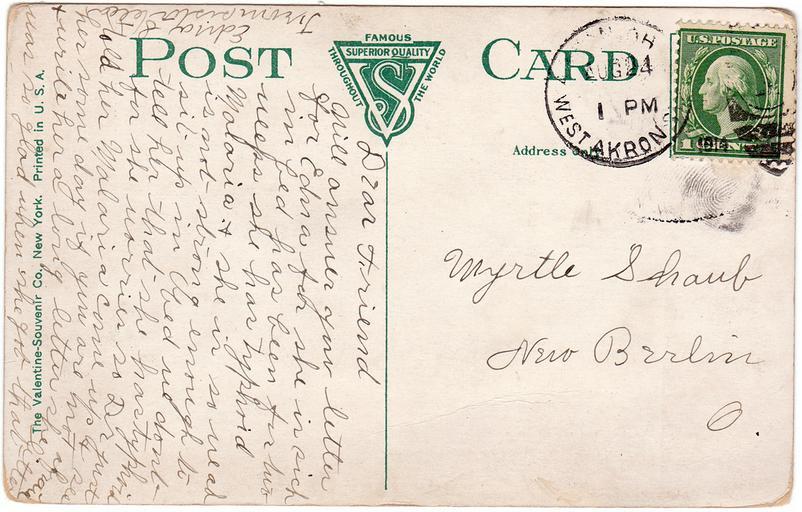 POST CARD
FAMOUS
SUPERIOR QUALITY
THROUGHOUT
THE WORLD
VS
AUG 24
1 PM
WEST AKRON
U.S. POSTAGE
1 CENT
1914
Address only
Myrtle Shaub
New Berlin
O.
Dear Friend
Will answer your letter
for Edna for she in sick
in bed has been for two
weeks she has typhoid
Malaria & she in so weak
is not strong enough to
sit up in bed nough to
tell her that she has typhoid
for she worries so Dr
told her Malaria come up & just
her some day if you are not
& write her a long letter she
was so glad when she got that letter
from sister
Edna
The Valentine-Souvenir Co., New York. Printed in U. S. A.